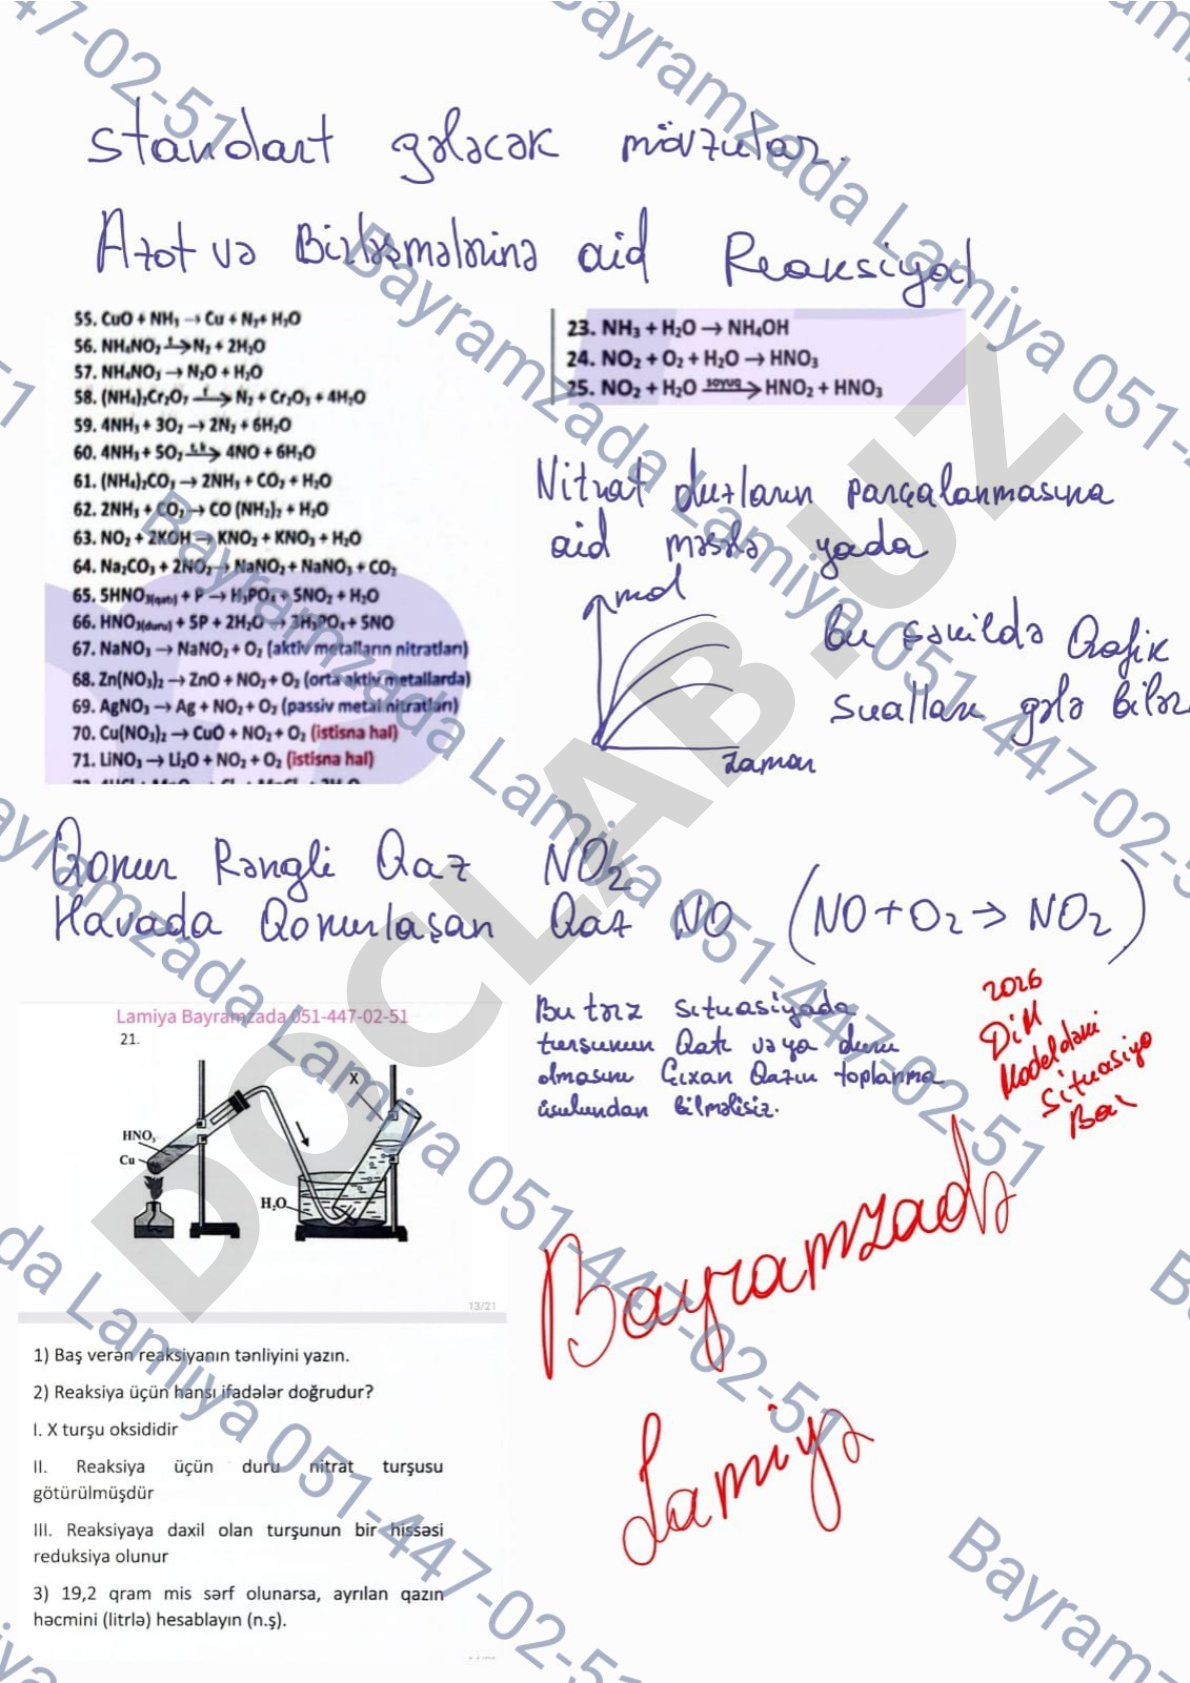 standart gələcək mövzular.
Azot və Birləşmələrinə aid Reaksiyal
55. CuO + NH₃ → Cu + N₂ + H₂O
56. NH₄NO₂ →(t) N₂ + 2H₂O
57. NH₄NO₃ → N₂O + H₂O
58. (NH₄)₂Cr₂O₇ →(t) N₂ + Cr₂O₃ + 4H₂O
59. 4NH₃ + 3O₂ → 2N₂ + 6H₂O
60. 4NH₃ + 5O₂ →(t, k) 4NO + 6H₂O
61. (NH₄)₂CO₃ → 2NH₃ + CO₂ + H₂O
62. 2NH₃ + CO₂ → CO (NH₂)₂ + H₂O
63. NO₂ + 2KOH → KNO₂ + KNO₃ + H₂O
64. Na₂CO₃ + 2NO₂ → NaNO₂ + NaNO₃ + CO₂
65. 5HNO₃(qatı) + P → H₃PO₄ + 5NO₂ + H₂O
66. HNO₃(duru) + 5P + 2H₂O → 3H₃PO₄ + 5NO
67. NaNO₃ → NaNO₂ + O₂ (aktiv metalların nitratları)
68. Zn(NO₃)₂ → ZnO + NO₂ + O₂ (orta aktiv metallarda)
69. AgNO₃ → Ag + NO₂ + O₂ (passiv metal nitratları)
70. Cu(NO₃)₂ → CuO + NO₂ + O₂ (istisna hal)
71. LiNO₃ → Li₂O + NO₂ + O₂ (istisna hal)
23. NH₃ + H₂O → NH₄OH
24. NO₂ + O₂ + H₂O → HNO₃
25. NO₂ + H₂O →(soyuq) HNO₂ + HNO₃
Nitrat duzların parçalanmasına
aid məsələ yada
mol
zaman
Bu şəkildə Qrafik
sualları gələ bilər
Qonur Rəngli Qaz NO₂
Havada Qonurlaşan Qaz NO (NO + O₂ → NO₂)
Lamiya Bayramzada 051-447-02-51
21.
X
HNO₃
Cu
H₂O
13/21
Bu tərz situasiyada
turşunun Qatı və ya duru
olmasını Çıxan Qazın toplanma
üsulundan bilməlisiz.
2026
DİM
Modeldəki
Situasiya
Bayramzadə
Lamiyə
1) Baş verən reaksiyanın tənliyini yazın.
2) Reaksiya üçün hansı ifadələr doğrudur?
I. X turşu oksididir
II. Reaksiya üçün duru nitrat turşusu
götürülmüşdür
III. Reaksiyaya daxil olan turşunun bir hissəsi
reduksiya olunur
3) 19,2 qram mis sərf olunarsa, ayrılan qazın
həcmini (litrlə) hesablayın (n.ş).
Bayramzada Lamiya 051-447-02-51
DOCLAB.UZ